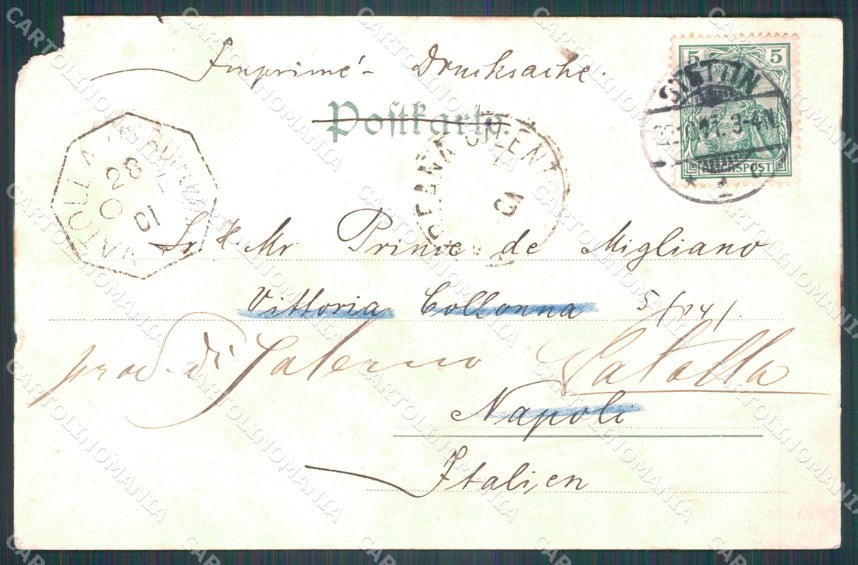 Imprimé - Drucksache.
Postkarte
5 5
STETTIN
3-4N
REICHSPOST
NATOLLA
28
01
CILENT
01
Mr Prince de Migliano
Vittoria Collonna 5/
prov. di Salerno Natolla
Napoli
Italien
CARTOLINOMANIA